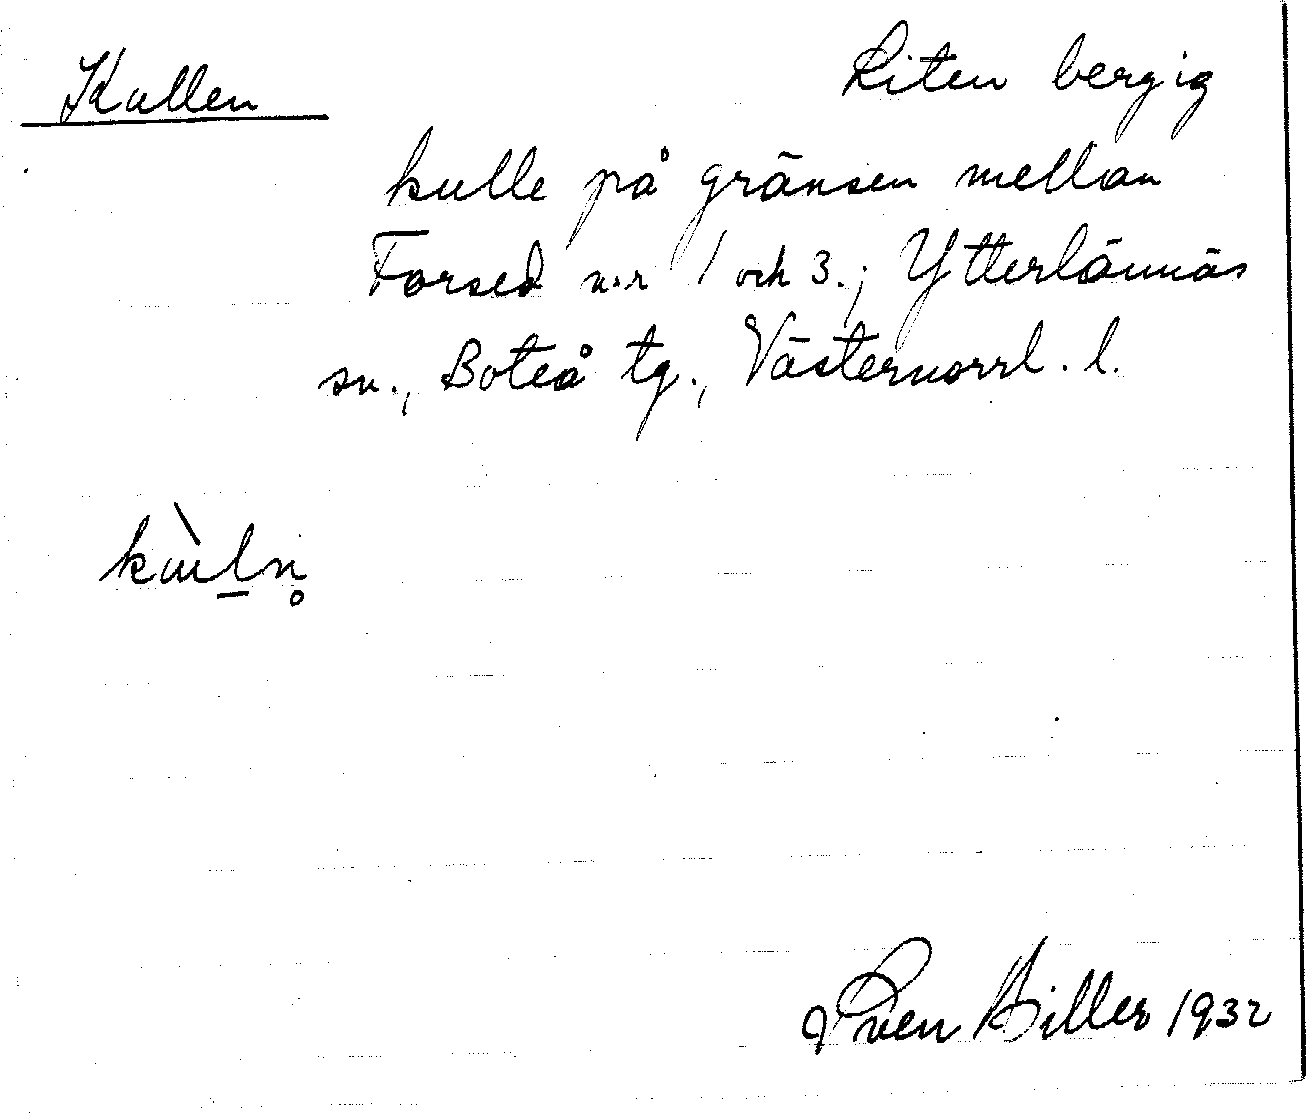 Kullen Liten bergig
kulle på gränsen mellan
Forsed n:r 1 och 3.; Ytterlännäs
sn., Boteå tg., Västernorrl. l.
Sven Hiller 1932